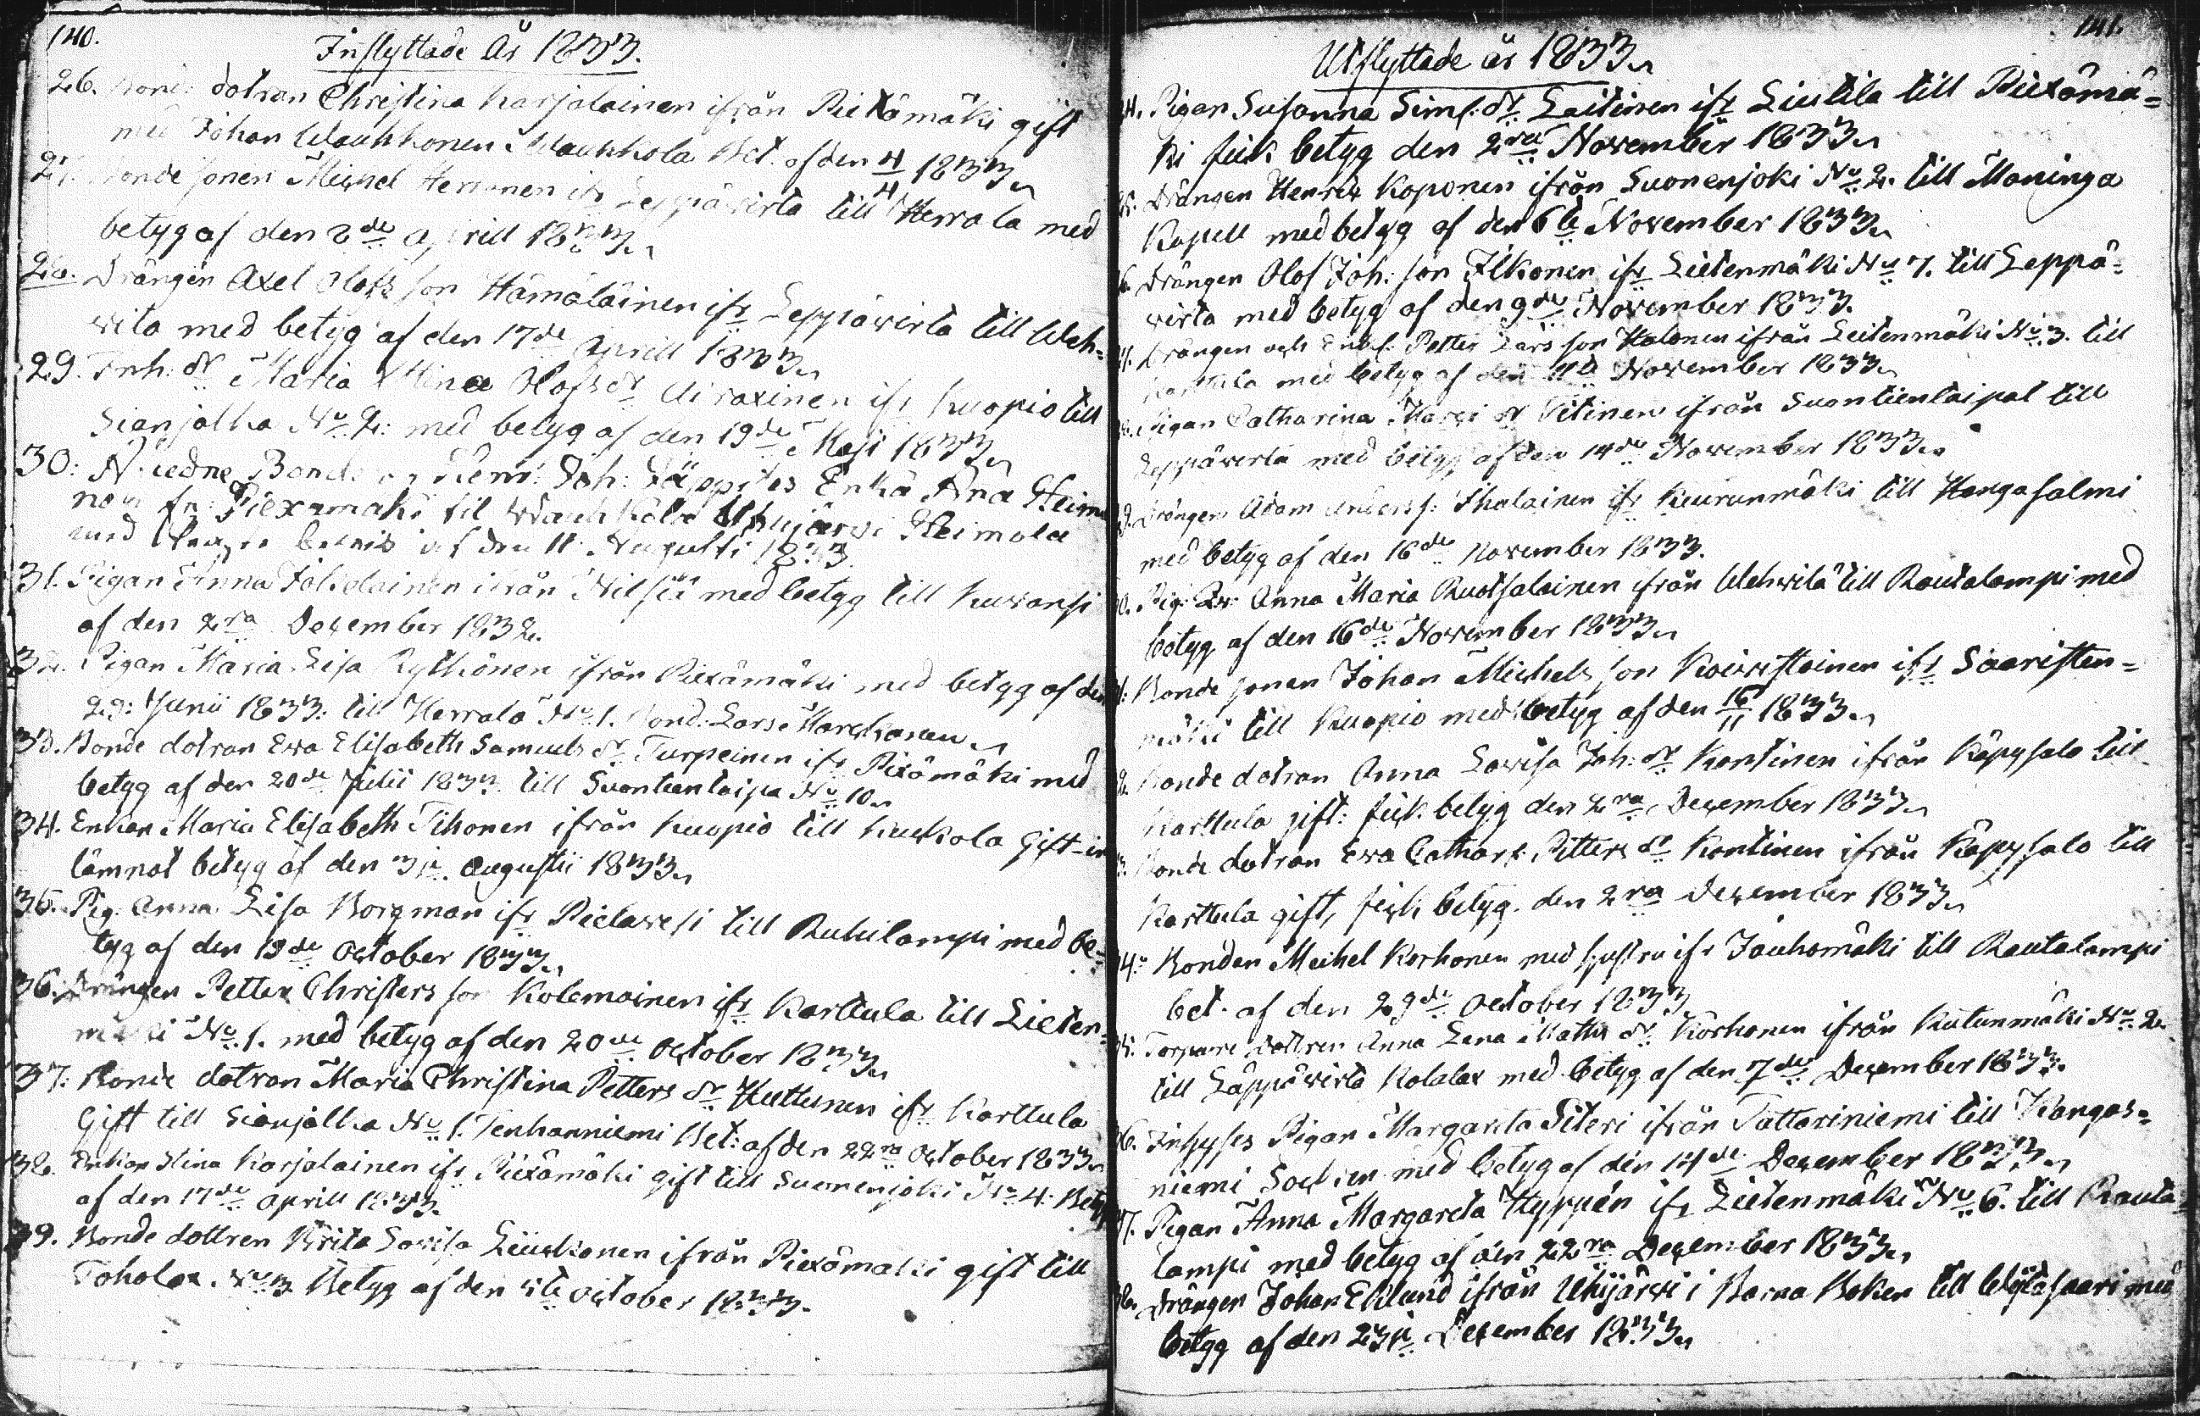 140.
Inflyttade År 1833.
26. Bonde dotran Christina Karjalainen ifrån Piexämäki gift
med Johan Wauhkonen Wauhkola Bet. af den 4/4 1833
27. Bonde sonen Michel Herranen ifr Leppäwirta till Herrala med
betyg af den 2de Aprill 1833
28. Drängen Axel Olofs son Hämäläinen ifr Leppäwirta till Weh=
wilä med betyg af den 17de Aprill 1833
29. Inh: dr Maria Stina Olofs dr Airaxinen ifr Kuopio till
Sianjalka No 2: med betyg af den 19de Maji 1833
30: Bonde Joh: Enka Ana Heimo
nen fr: Piexamaki til Wauhkola Uhujärwi Heimola
med af den 11 Augusti 1833.
31. Pigan Anna ifrån Nilsiä med betyg till Kuwansi
af den 2ra December 1832.
32. Pigan Maria Lisa Rythönen ifrån Piexämäki med betyg af den
29: Junii 1833: till Herrala No 1. Bond: Lars Marchanen
33. Bonde dotran Ewa Elisabeth Samuels dr Turpeinen ifr Pixämäki med
betyg af den 20de Julii 1833 till Suontientaipa No 10
34. Enkan Maria Elisabeth Tihonen ifrån Kuopio till Kukkola Gift-in
lämnat betyg af den 3je Augustii 1833
35. Pig: Anna Lisa Borgman ifr Pielawesi till Ruhilampi med be=
tyg af den 19de October 1833
36. Drängen Petter Christers son Kolemainen ifr Karttula till Lieten=
mäki No 1. med betyg af den 20de October 1833
37: Bonde dotran Maria Christina Petters dr Huttunen ifr Karttula
Gift till Sianjalka No 1. Tenhanniemi Bet: af den 22ra October 1833
38. Enkan Stina Karjalainen ifr Piexämäki gift till Suonenjoki No 4. Bet
af den 17de Aprill 1833.
39. Bonde dottren Brita Lowisa Liukkonen ifrån Piexämäki gift till
Toholax No 3 Betyg af den 5te October 1833.
141.
Utflyttade år 1833
Pigan Susanna Sims: dr Laitinen ifr Liutila till Piexämä=
ki fick betyg den 2ra November 1833
Drängen Henrik Koponen ifrån Suonenjoki No 2. till Maninga
Kapell med betyg af den 6te November 1833
Drängen Olof Joh: son Ilkonen ifr Lietenmäki No 7. till Leppä=
wirta med betyg af den 9de November 1833.
Drängen och Enkl. Petter Lars son Halonen ifrån Leitenmäki No 3. till
Karttula med betyg af den November 1833
Pigan Catharina dr Vitinen ifrån Suontientaipal till
Leppäwirta med betyg af den 14de November 1833
Drängen Adam Anders s: Ihalainen ifr Kuurunmäki till Hangasalmi
med betyg af den 16de November 1833.
Pig: Qv: Anna Maria Ruotsalainen ifrån Wehwilä till Rautalampi med
betyg af den 16de November 1833
Bonde sonen Johan Michels son Koiwistoinen ifr Saaristen=
mäki till Kuopio med betyg af den 16/11 1833
Bonde dotran Anna Lowisa Joh: dr Kontinen ifrån Käpysalo till
Karttula gift: fick betyg den 2ra December 1833
Bonde dotran Ewa Cathar: Petters dr Kontinen ifrån Käpysalo till
Karttula gift, fick betyg den 2ra December 1833
Bonden Meikel Korhonen med hustru ifr Jauhomäki till Rautalampi
bet. af den 29de October 1833
Torpare dottren Anna Lena Matts dr Korhonen ifrån Kutunmäki No 2.
till Läppäwirta Kolalax med betyg af den 7de December 1833.
Inhyses Pigan Margareta Siteri ifrån Tattariniemi till Kangas=
niemi Socken med betyg af den 14de December 1833
Pigan Anna Margareta Hyppén ifr Lietenmäki No 6. till Rauta
lampi med betyg af den 22ra December 1833
Drängen Johan Eklund ifrån Uhijärwi i Barna Boken till Witasaari med
betyg af den 23je December 1833